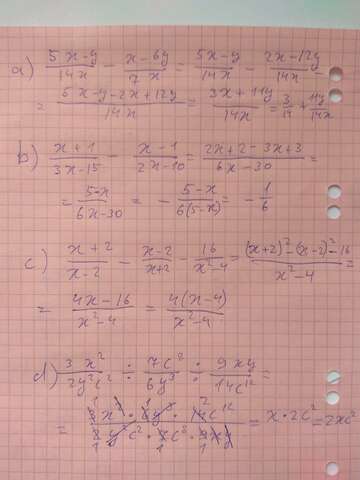 a) (5x-y)/(14x) - (x-6y)/(7x) = (5x-y)/(14x) - (2x-12y)/(14x) =
= (5x-y-2x+12y)/(14x) = (3x+11y)/(14x) = 3/14 + 11y/(14x)
b) (x+1)/(3x-15) - (x-1)/(2x-10) = (2x+2-3x+3)/(6x-30) =
= (5-x)/(6x-30) = - (5-x)/(6(5-x)) = - 1/6
c) (x+2)/(x-2) - (x-2)/(x+2) - 16/(x²-4) = ((x+2)²-(x-2)²-16)/(x²-4) =
= (4x-16)/(x²-4) = 4(x-4)/(x²-4)
d) 3x²/(2y³c²) : 7c⁸/(6y³) : 9xy/(14c¹²) =
= = x·2c² = 2xc²